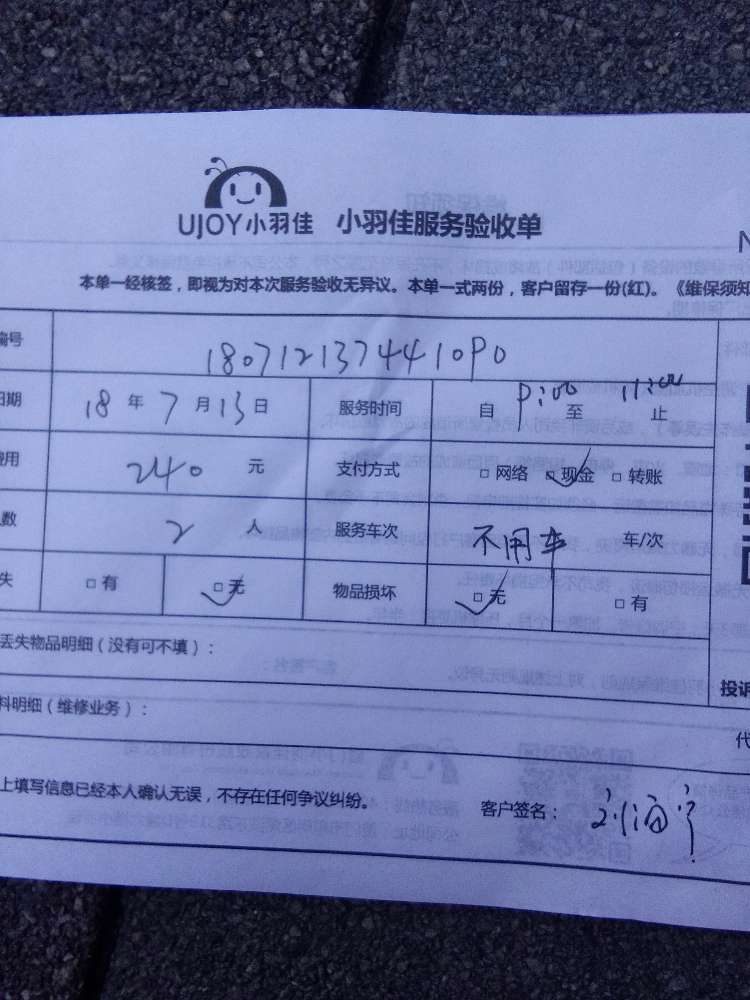 UJOY小羽佳 小羽佳服务验收单
N
本单一经核签，即视为对本次服务验收无异议。本单一式两份，客户留存一份(红)。《维保须知
编号 180712137441OPO
日期 18 年 7 月 13 日 服务时间 自 9:00 至 11:00 止
费用 240 元 支付方式 □网络 □现金 □转账
人数 2 人 服务车次 不用车 车/次
失 □有 □无 物品损坏 □无 □有
丢失物品明细（没有可不填）：
投诉
料明细（维修业务）：
代
上填写信息已经本人确认无误，不存在任何争议纠纷。 客户签名：